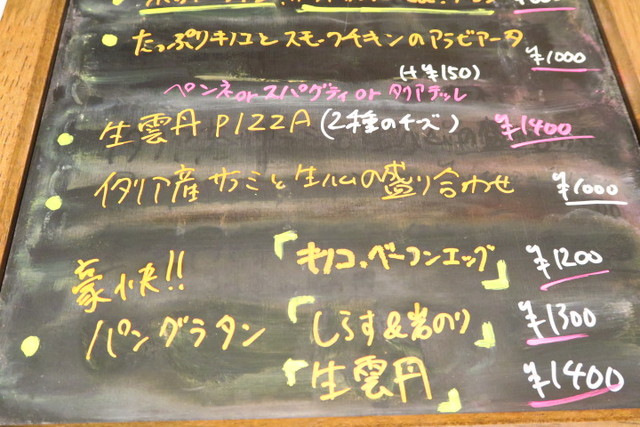 たっぷりキノコとスモークチキンのアラビアータ ¥1000
(+¥150)
ペンネorスパゲティorタリアテッレ
生雲丹PIZZA(2種のチーズ) ¥1400
イタリア産サラミと生ハムの盛り合わせ ¥1000
豪快!! パングラタン
「キノコ・ベーコンエッグ」 ¥1200
「しらす&岩のり」 ¥1300
「生雲丹」 ¥1400